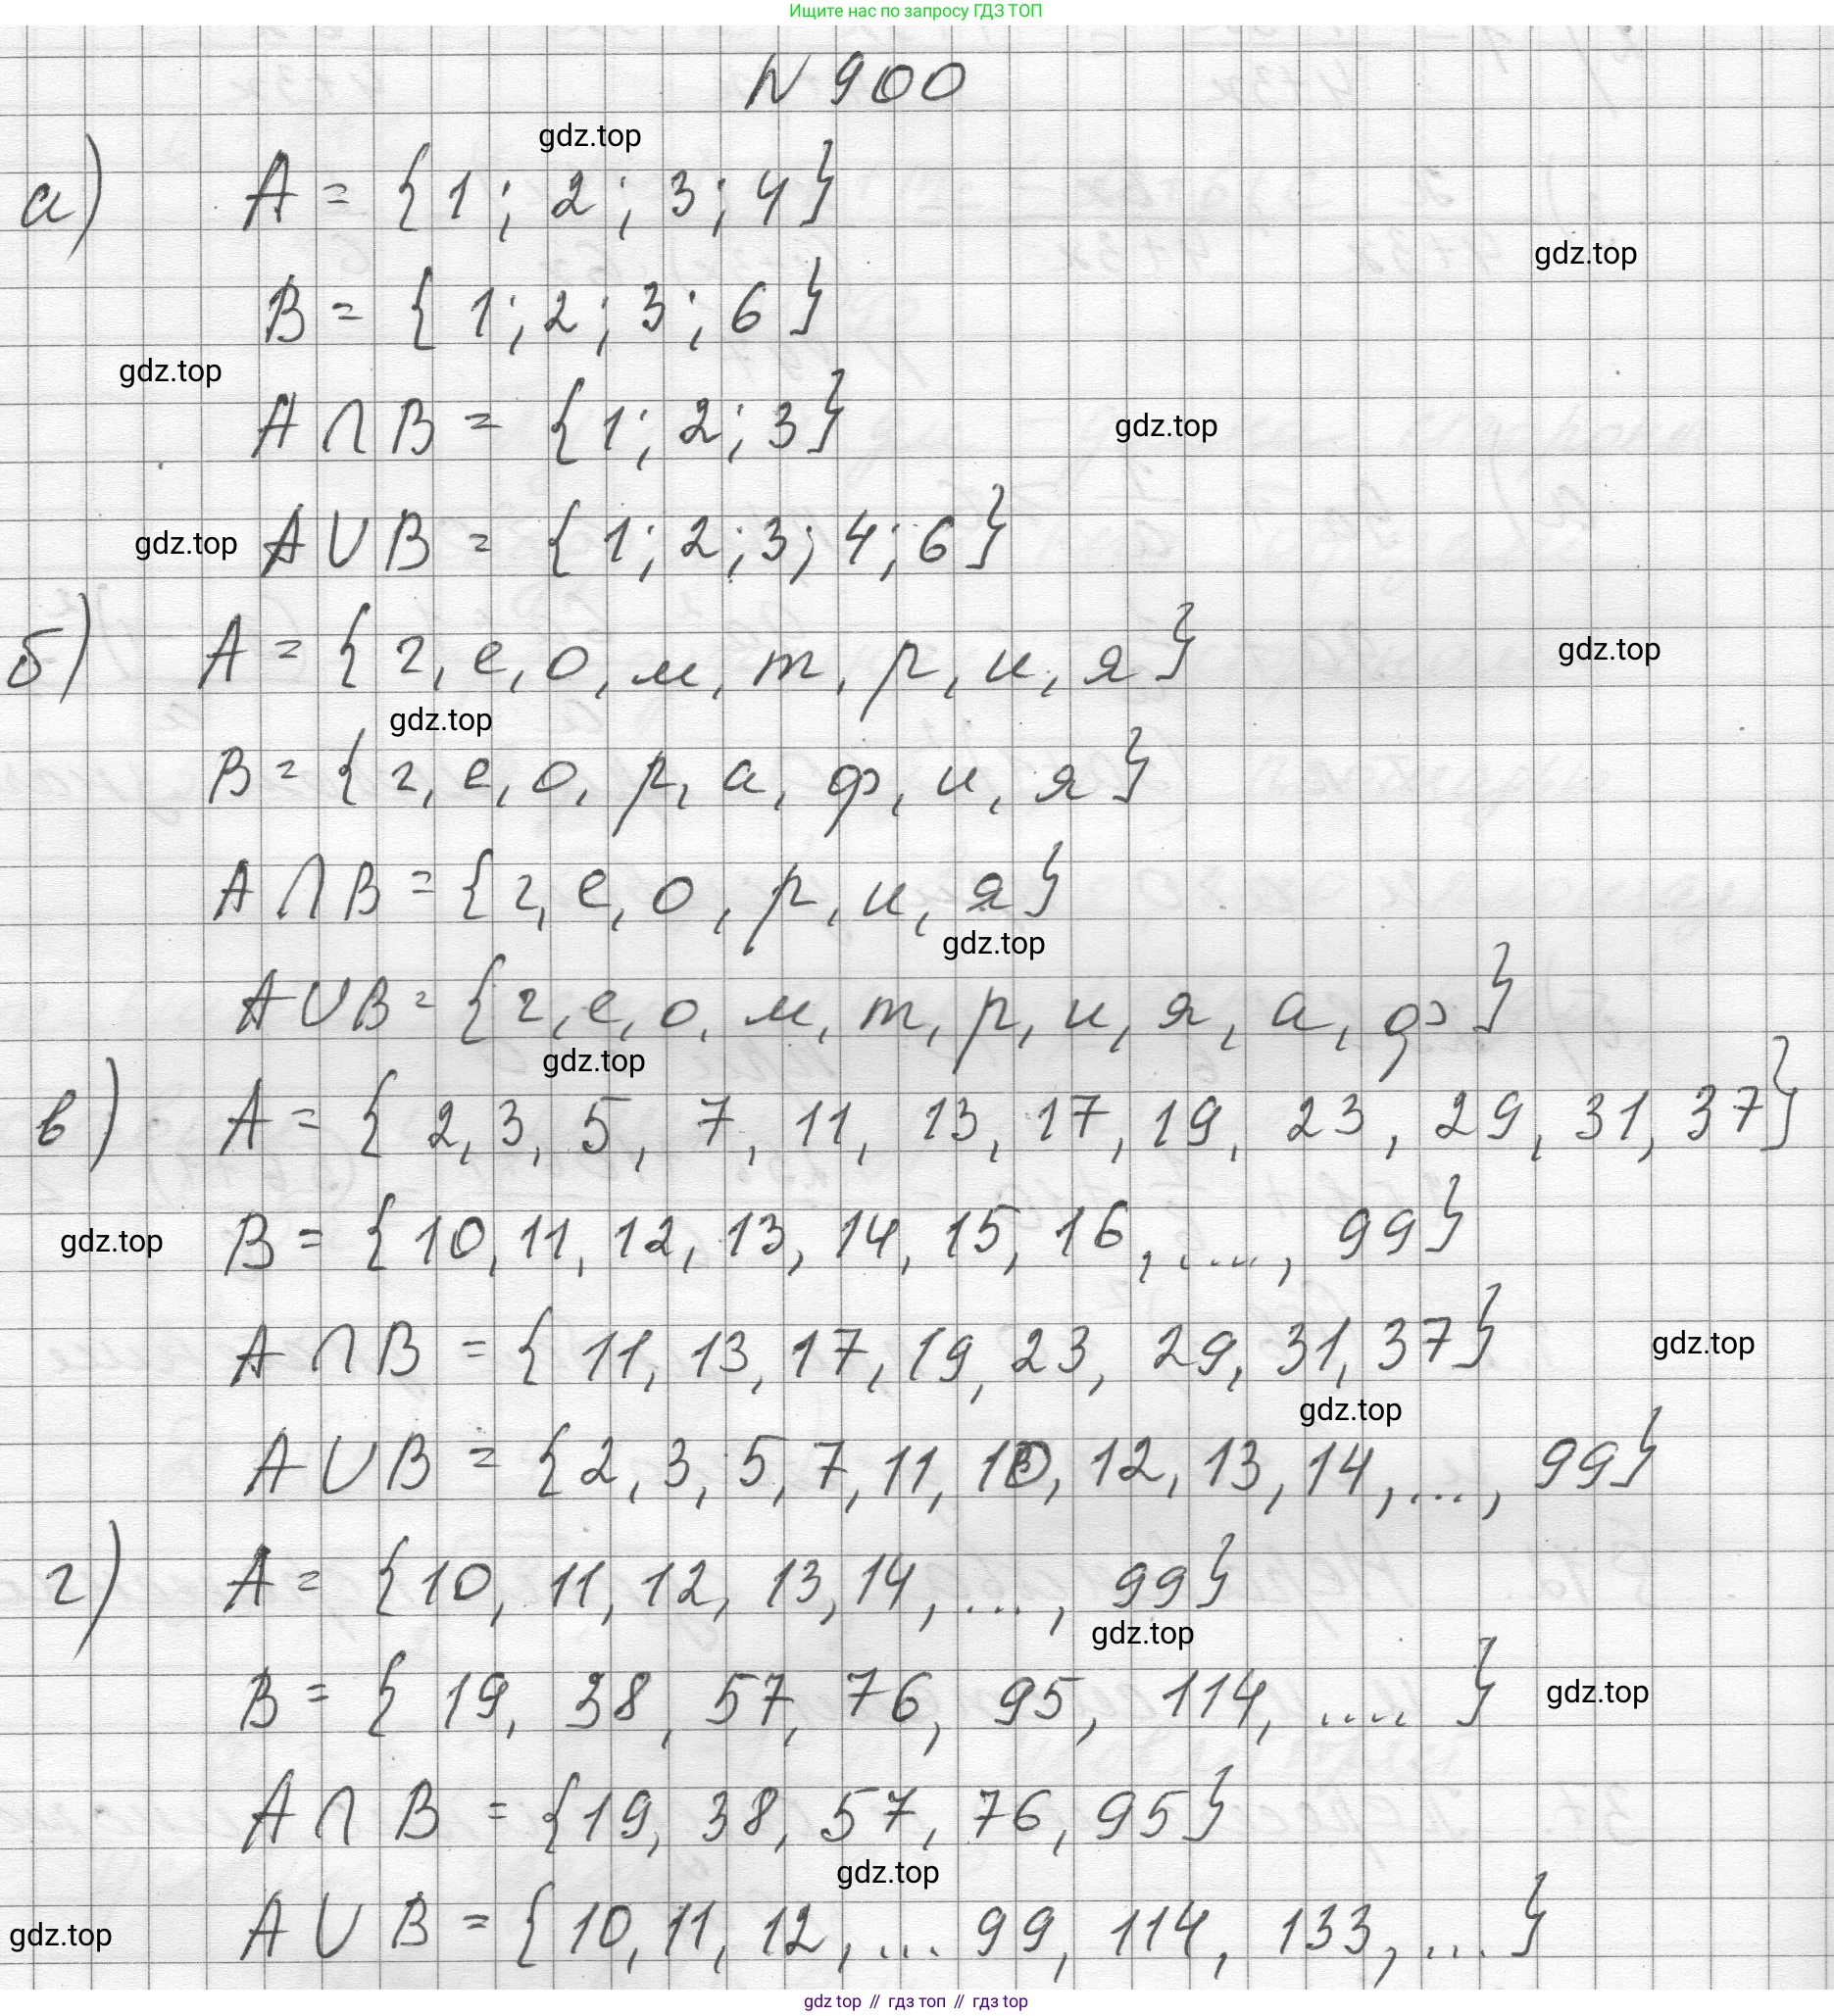 Ищите нас по запросу ГДЗ ТОП
N 900
gdz.top
а) A = {1; 2; 3; 4}
gdz.top
B = {1; 2; 3; 6}
gdz.top
A ∩ B = {1; 2; 3}
gdz.top
gdz.top
A ∪ B = {1; 2; 3; 4; 6}
б) A = {г, е, о, м, т, р, и, я}
gdz.top
gdz.top
B = {г, е, о, р, а, ф, и, я}
A ∩ B = {г, е, о, р, и, я}
gdz.top
A ∪ B = {г, е, о, м, т, р, и, я, а, ф}
gdz.top
в) A = {2, 3, 5, 7, 11, 13, 17, 19, 23, 29, 31, 37}
gdz.top
B = {10, 11, 12, 13, 14, 15, 16, ...., 99}
A ∩ B = {11, 13, 17, 19, 23, 29, 31, 37}
gdz.top
gdz.top
A ∪ B = {2, 3, 5, 7, 11, 10, 12, 13, 14, ..., 99}
г) A = {10, 11, 12, 13, 14, ..., 99}
gdz.top
B = {19, 38, 57, 76, 95, 114, ....}
gdz.top
A ∩ B = {19, 38, 57, 76, 95}
gdz.top
A ∪ B = {10, 11, 12, ... 99, 114, 133, ...}
gdz.top
gdz top // гдз топ // гдз top